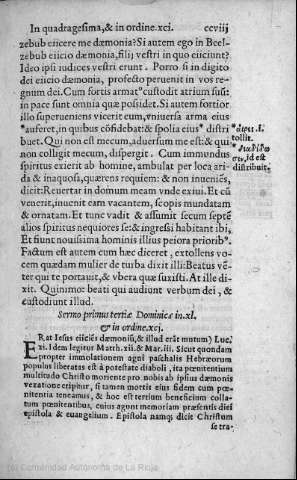 In quadragesima, & in ordine.xci. ccviij
zebub eiicere me dæmonia? Si autem ego in Beel-
zebub eiicio dæmonia, filij vestri in quo eiiciunt?
Ideo ipsi iudices vestri erunt. Porro si in digito
dei eiicio dæmonia, profecto peruenit in vos re-
gnum dei. Cum fortis armatꝰ custodit atrium suũ:
in pace sunt omnia quæ possidet. Si autem fortior
illo superueniens vicerit eum, vniuersa arma eius
*auferet, in quibus cõfidebat: & spolia eius* distri
buet. Qui non est mecum, aduersum me est: & qui
non colligit mecum, dispergit. Cum immundus
spiritus exierit ab homine, ambulat per loca ari-
da & inaquosa, quærens requiem: & non inueniẽs,
dicit: Reuertar in domum meam vnde exiui. Et cũ
venerit, inuenit eam vacantem, scopis mundatam
& ornatam. Et tunc vadit & assumit secum septẽ
alios spiritus nequiores se: & ingressi habitant ibi,
Et fiunt nouissima hominis illius peiora priorib*.
Factum est autem cum hæc diceret, extollens vo-
cem quædam mulier de turba dixit illi: Beatus vẽ-
ter qui te portauit, & vbera quæ suxisti. At ille di-
xit. Quinimo: beati qui audiunt verbum dei, &
custodiunt illud.
*αἴρει .i.
tollit.
*διαδίδω
σιν, id est
distribuit.
Sermo primus tertiæ Dominicæ in.xl.
& in ordine.xcj.
ERat Iesus eiiciẽs dæmoniũ, & illud erãt mutum) Luc.
xi. Idem legitur Matth. xii. & Mar. iii. Sicut quondam
propter immolationem agni paschalis Hebræorum
populus liberatus est à potestate diaboli, ita pœnitentium
multitudo Christo moriente pro nobis ab ipsius dæmonis
vexatione eripitur, si tamen mortis eius fidem cum pœ-
nitentia teneamus, & hoc est tertium beneficium collatum
pœnitentibus, cuius agunt memoriam præsentis diei
epistola & euangelium. Epistola namq; dicit Christum
se tra-
(c) Comunidad Autónoma de La Rioja